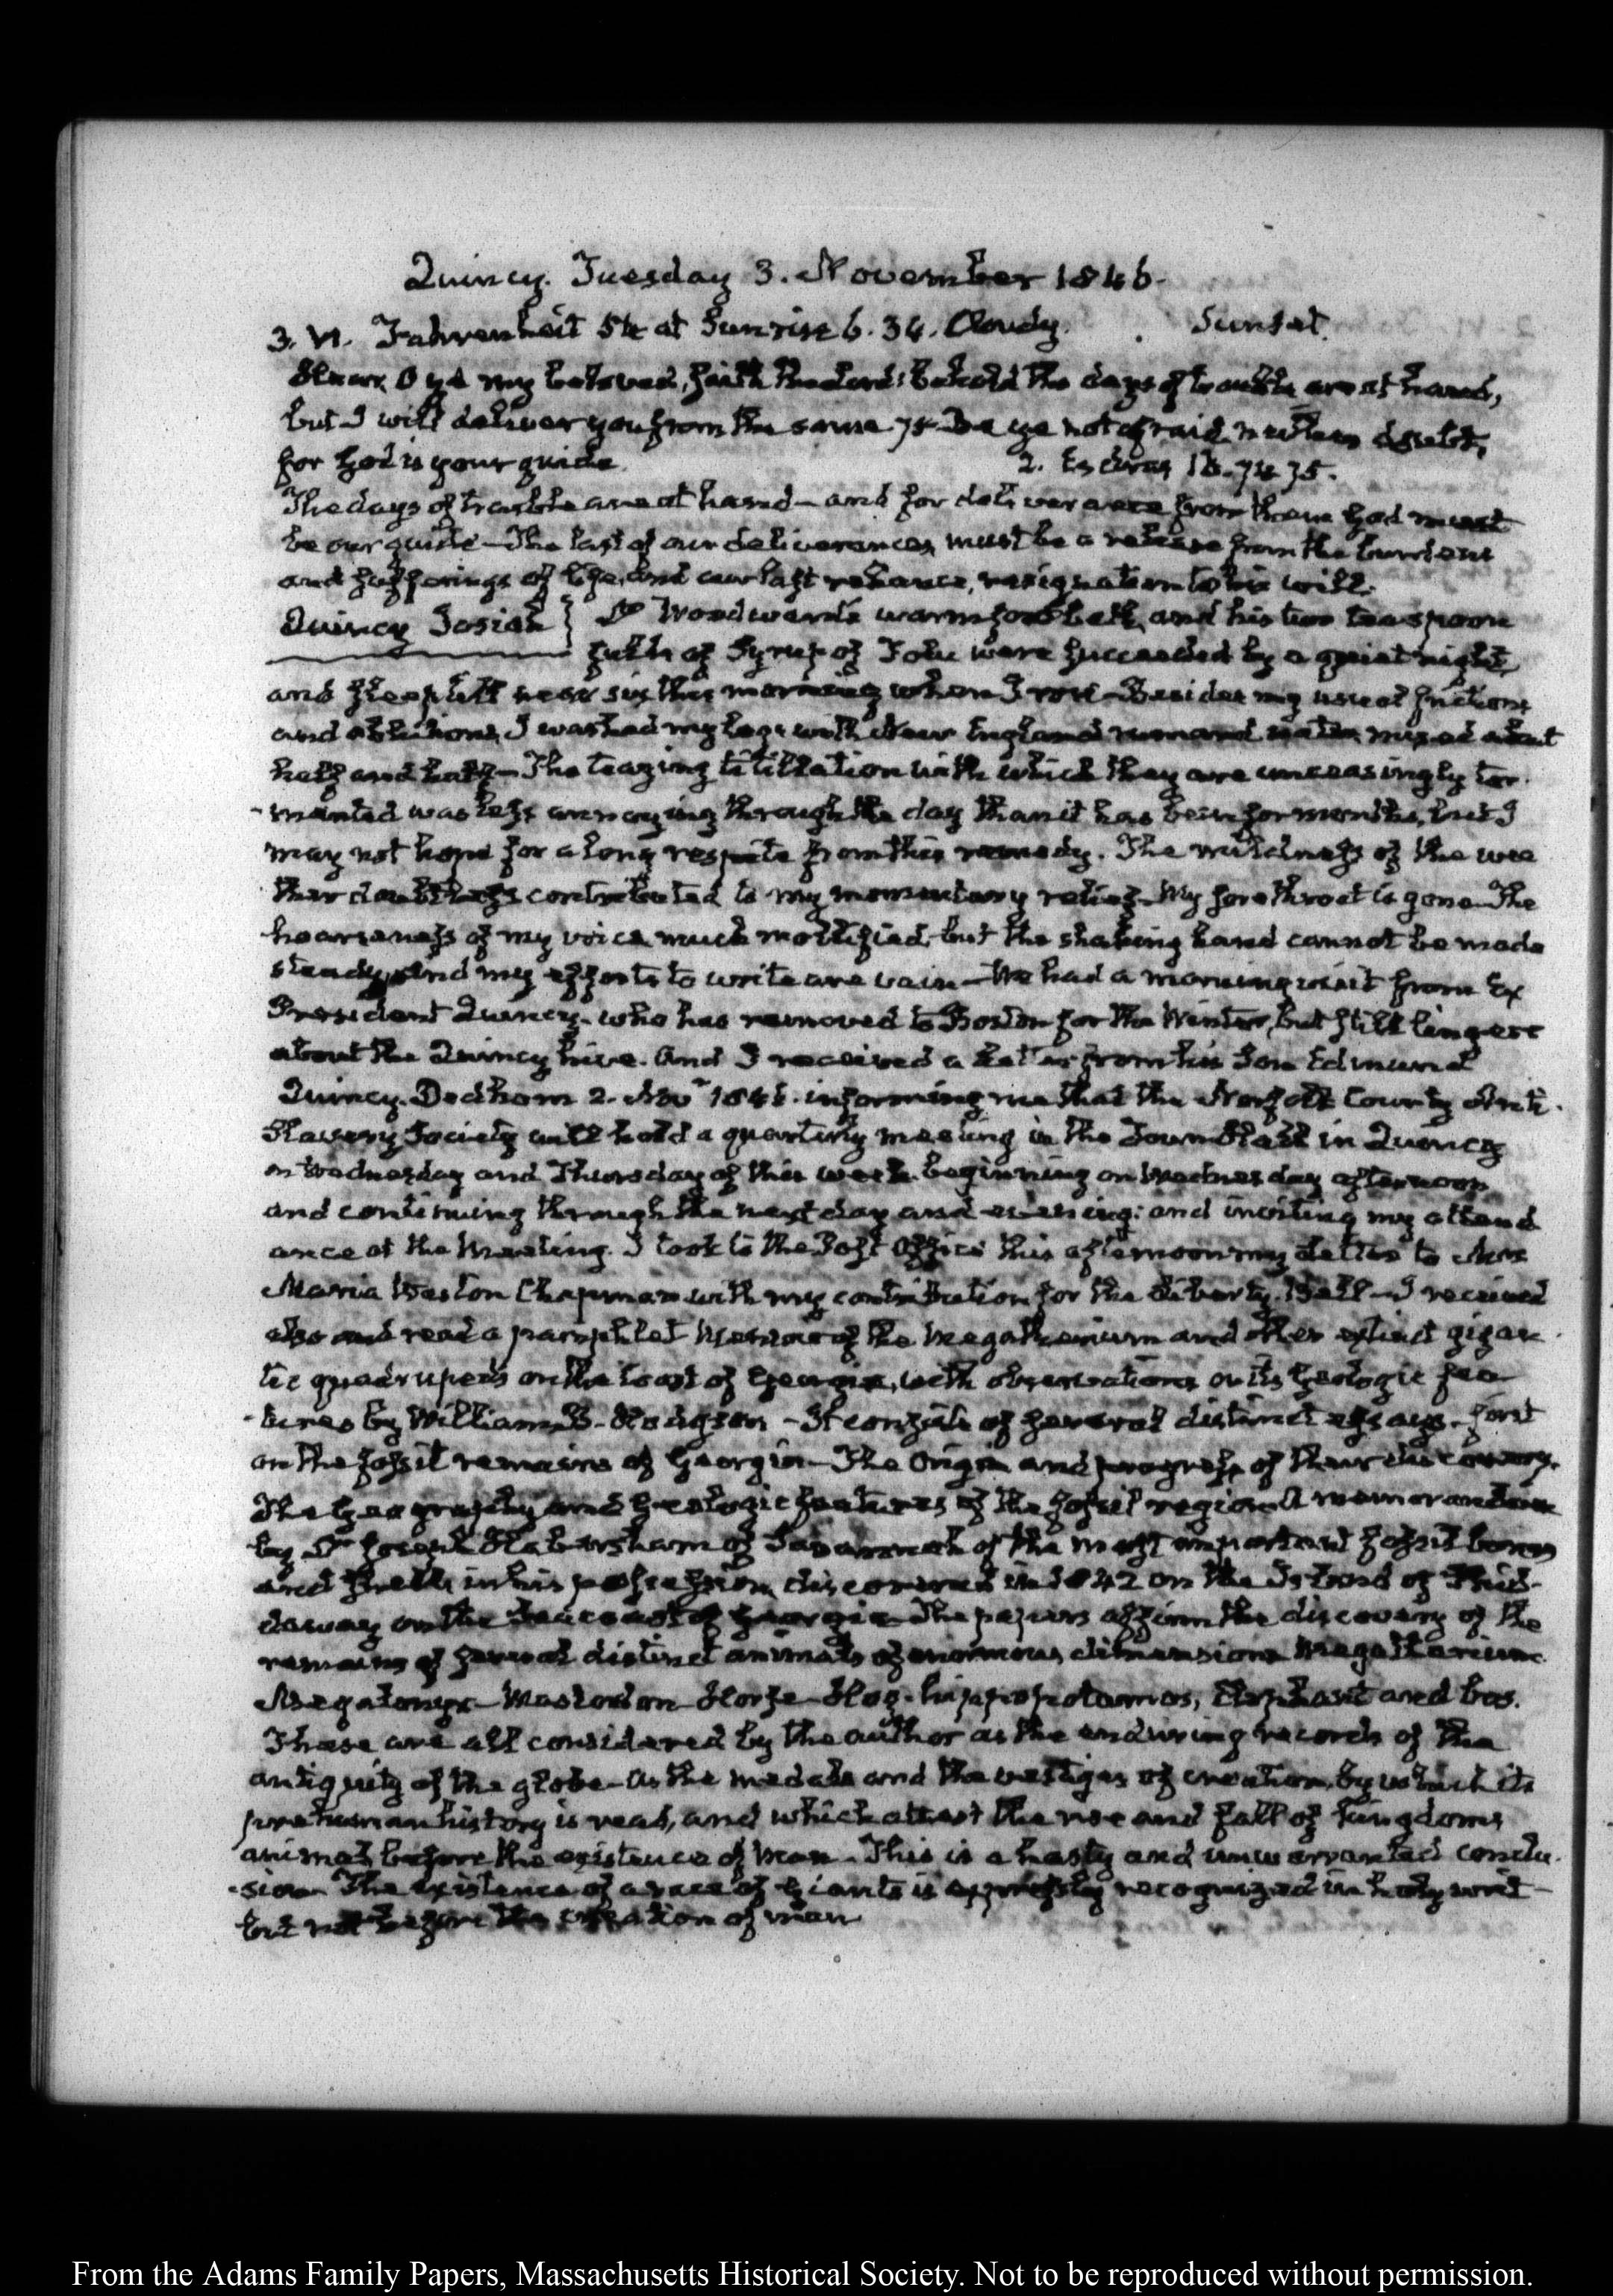 Quincy. Tuesday 3. November 1846.
3. VI. Fahrenheit 54 at Sunrise 6. 34. Cloudy. Sunset.
Hear, O ye my beloved, saith the Lord: behold the days of trouble are at hand,
but I will deliver you from the same. 75 Be ye not afraid neither doubt,
for God is your guide. 2. Esdras 16. 74 75.
The days of trouble are at hand — and for deliverance from them God must
be our guide — The last of our deliverances must be a release from the burdens
and sufferings of life, and our last reliance, resignation to his will.
Quincy Josiah } Dr Woodward's warm foot bath, and his two teaspoon
fulls of Syrup of Tolu were succeeded by a quiet night,
and sleep till near six this morning when I rose — Besides my usual frictions
and ablutions, I washed my legs with New England rum and water mixed about
half and half — The teazing titillation with which they are unceasingly tor-
-mented was less annoying through the day than it has been for months, but I
may not hope for a long respite from this remedy. The mildness of the wea
ther doubtless contributed to my momentary relief. My sore throat is gone — The
hoarseness of my voice much mollified, but the shaking hand cannot be made
steady, and my efforts to write are vain — We had a morning visit from Ex
President Quincy, who has removed to Boston for the Winter, but still lingers
about the Quincy hive. And I received a Letter from his Son Edmund
Quincy. Dedham 2. Nov 1846. informing me that the Norfolk County Anti-
Slavery Society will hold a quarterly meeting in the Town Hall in Quincy
on Wednesday and Thursday of this week. beginning on Wednesday afternoon
and continuing through the next day and evening: and inviting my attend
ance at the Meeting. I took to the Post Office this afternoon my Letter to Mrs
Maria Weston Chapman with my contribution for the Liberty Bell — I received
also and read a pamphlet Memoir of the Megatherium and other extinct gigan-
tic quadrupeds on the Coast of Georgia, with observations on its Geologic fea-
-tures by William B. Hodgson — It consists of several distinct essays. first
on the fossil remains of Georgia — The Origin and progress of their discovery.
The Geography and Geologic features of the fossil region A memorandum
by Dr Joseph Habersham of Savannah of the most important fossil bones
and shells in his possession, discovered in 1842 on the Island of Skid-
daway on the Sea coast of Georgia — The papers affirm the discovery of the
remains of several distinct animals of enormous dimensions Megatherium
Megalonyx — Mastodon Horse — Hog — hippopotamos, Elephant and bos.
These are all considered by the author as the enduring records of the
antiquity of the globe — As the medals and the vestiges of creation, by which its
prehuman history is read, and which attest the rise and fall of kingdoms
animal, before the existence of Man — This is a hasty and unwarranted conclu-
-sion — The existence of a race of Giants is expressly recognized in holy writ —
but not before the creation of man
From the Adams Family Papers, Massachusetts Historical Society. Not to be reproduced without permission.